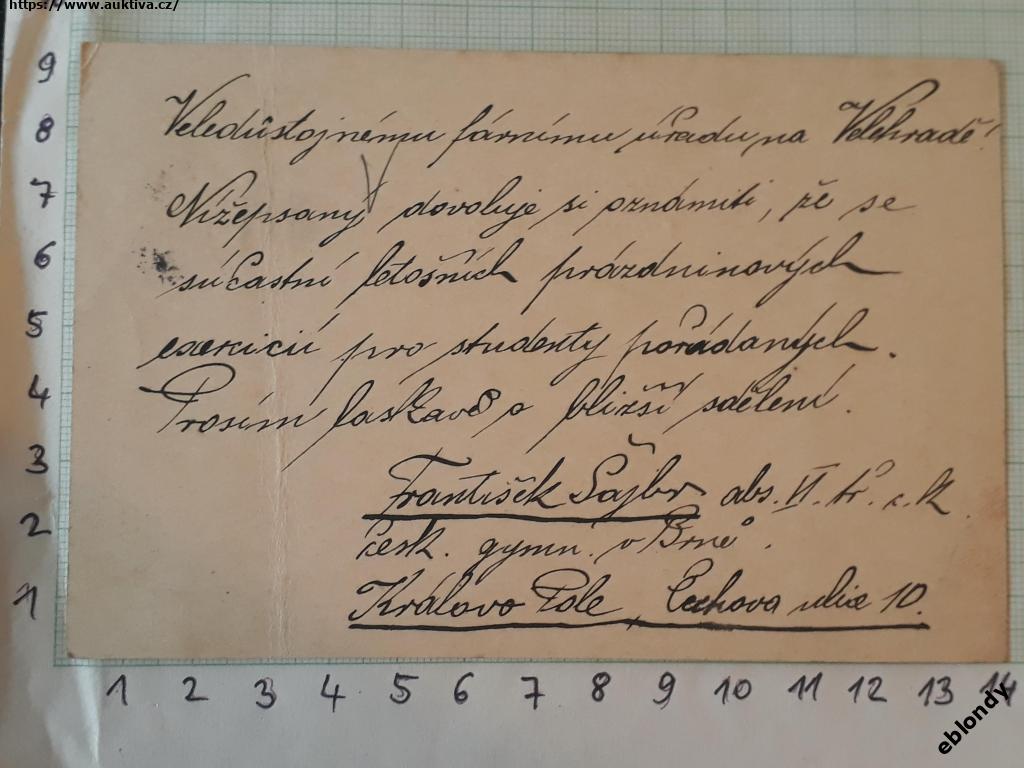 https://www.auktiva.cz/
9
8
7
6
5
4
3
2
1
Veledůstojnému fárnímu úřadu na Velehradě!
Nížepsaný dovoluje si oznámiti, že se
súčastní letošních prázdninových
exercicií pro studenty pořádaných.
Prosím laskavě o bližší sdělení.
František Šajbr abs. VI. tř. c. k.
česk. gymn. v Brně.
Královo Pole, Čechova ulice 10.
1 2 3 4 5 6 7 8 9 10 11 12 13 14
eblondy